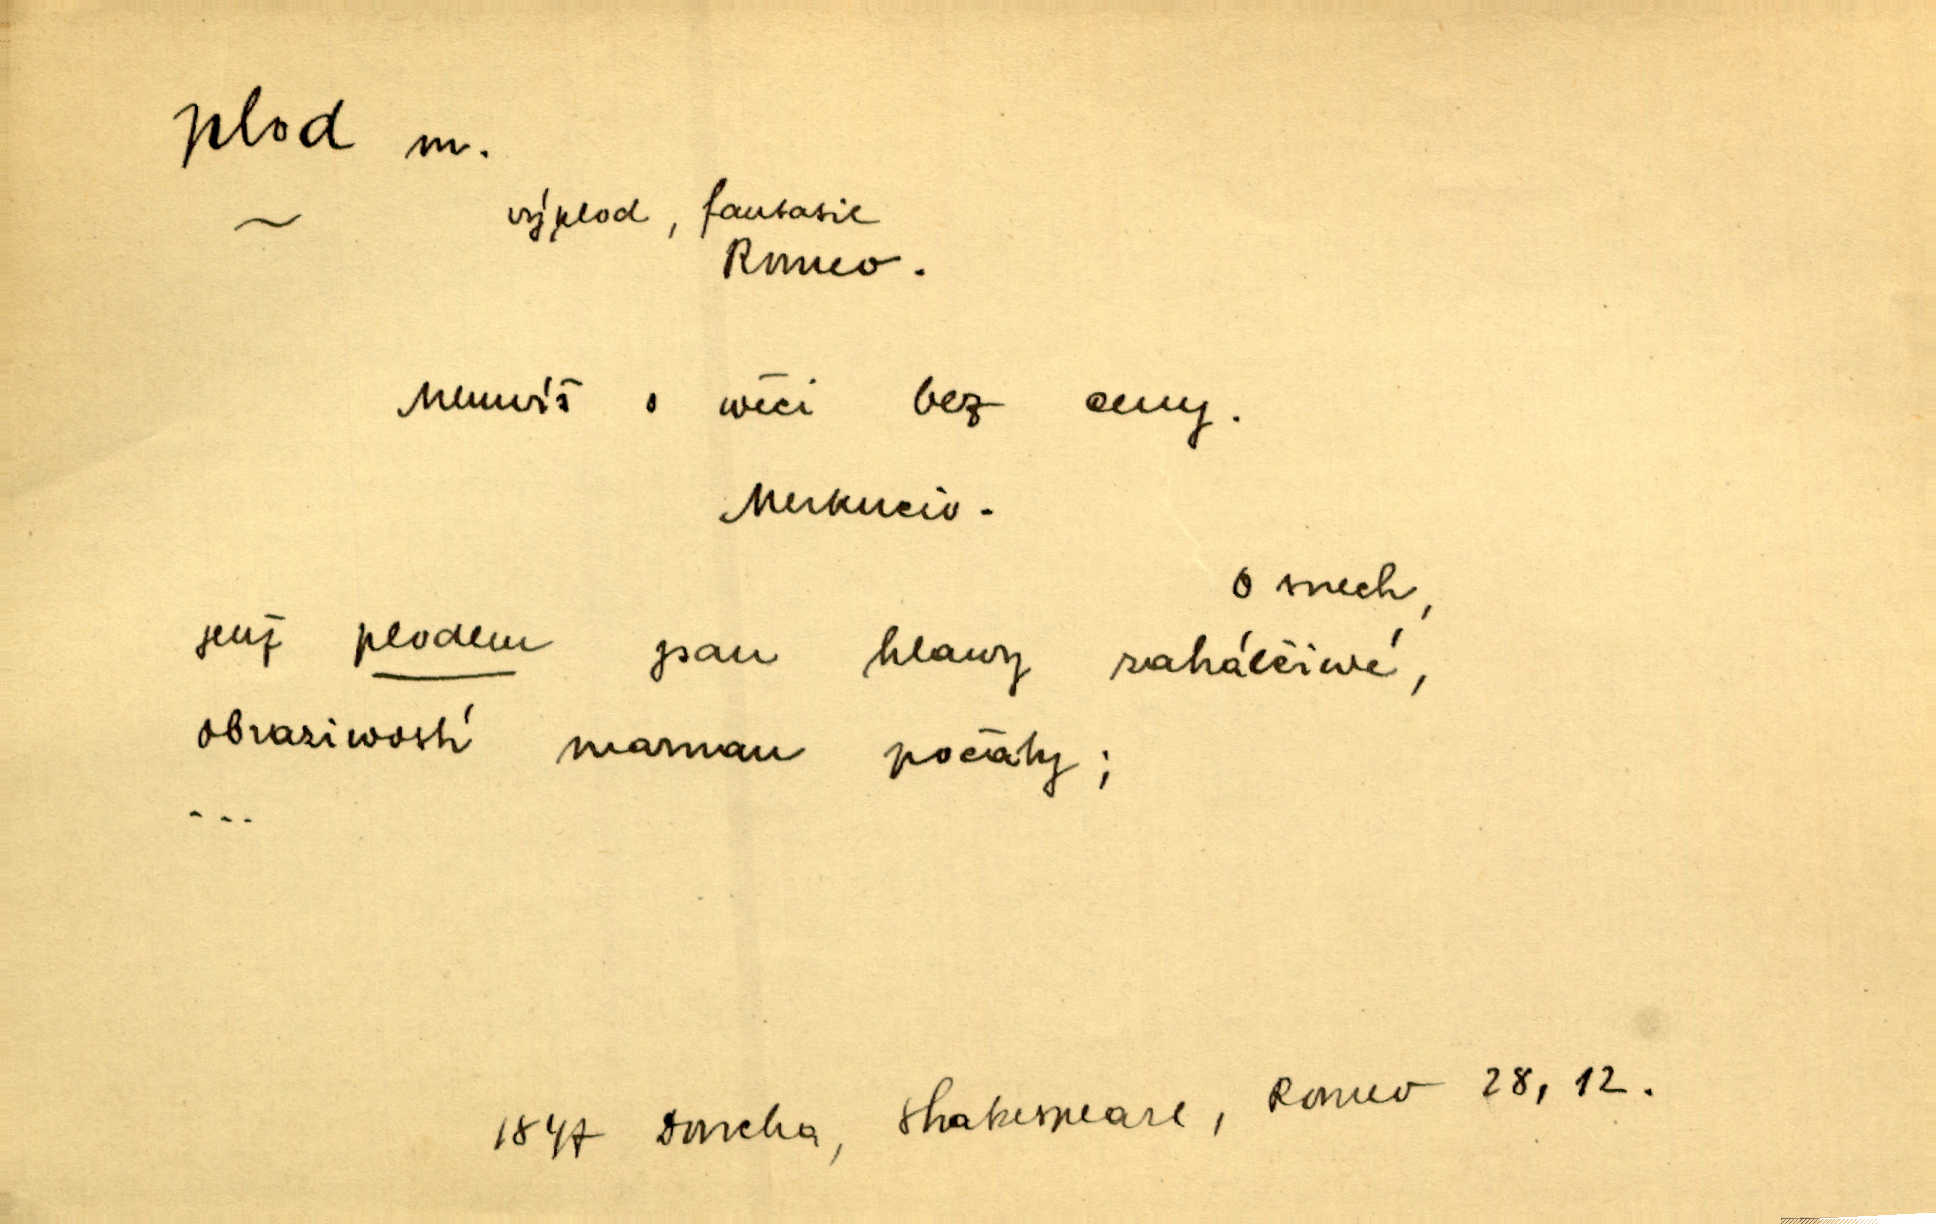 plod m.
~ výplod, fantasie
Romeo.
Mluwíš o wěci bez ceny.
Merkucio.
O snech,
jenž plodem jsau hlawy zahálčiwé,
obraziwostí marnau počaty;
...
1847 Doucha, Shakespeare, Romeo 28, 12.